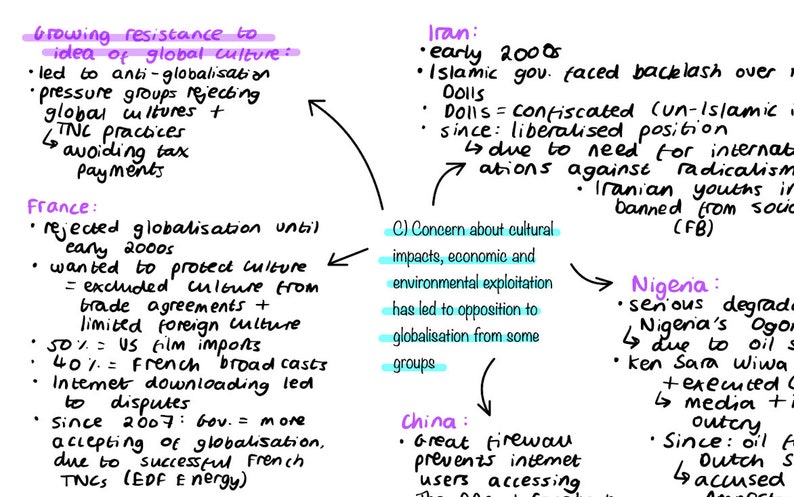 Growing resistance to
idea of global culture:
• led to anti-globalisation
• pressure groups rejecting
global cultures +
↳ TNC practices
↳ avoiding tax
payments
France:
• rejected globalisation until
early 2000s
• wanted to protect culture
= excluded culture from
trade agreements +
limited foreign culture
• 50% = US film imports
• 40% = French broadcasts
• Internet downloading led
to disputes
• since 2007: Gov. = more
accepting of globalisation,
due to successful French
TNCs (EDF Energy)
C) Concern about cultural
impacts, economic and
environmental exploitation
has led to opposition to
globalisation from some
groups
Iran:
• early 2000s
• Islamic gov. faced backlash over
Dolls
• Dolls = confiscated (un-Islamic
• since: liberalised position
↳ due to need for
ations against radicalism
• Iranian youths
banned from
(FB)
Nigeria:
• serious
Nigeria's
↳ due to oil
• Ken Sara Wiwa
+ executed
↳ media +
outcry
• Since: oil
Dutch
↳ accused
China:
• Great firewall
prevents internet
users accessing